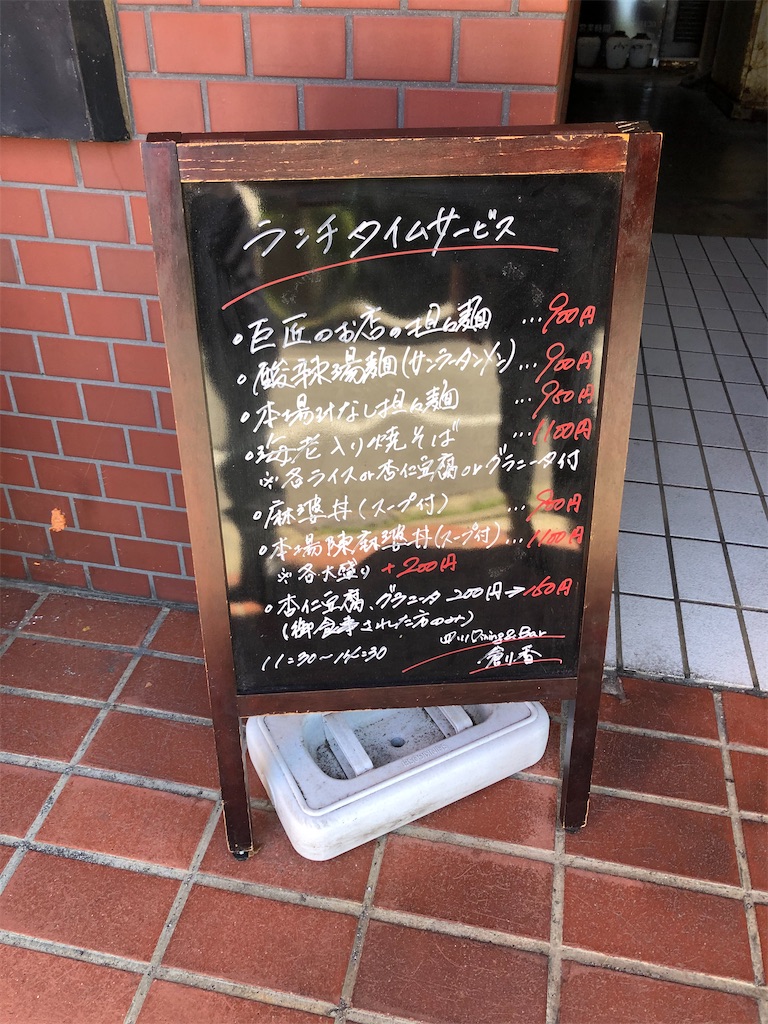 ランチタイムサービス
○巨匠のお店の担々麺 …900円
○酸辣湯麺(サンラータンメン)…900円
○本場汁なし担々麺 …950円
○海老入り焼そば …1100円
※各ライスor杏仁豆腐orグラニータ付
○麻婆丼(スープ付) …900円
○本場陳麻婆丼(スープ付)…1100円
※各大盛り +200円
○杏仁豆腐、グラニータ 200円→150円
(御食事された方のみ)
11:30~14:30
四川Dining&Bar
創香